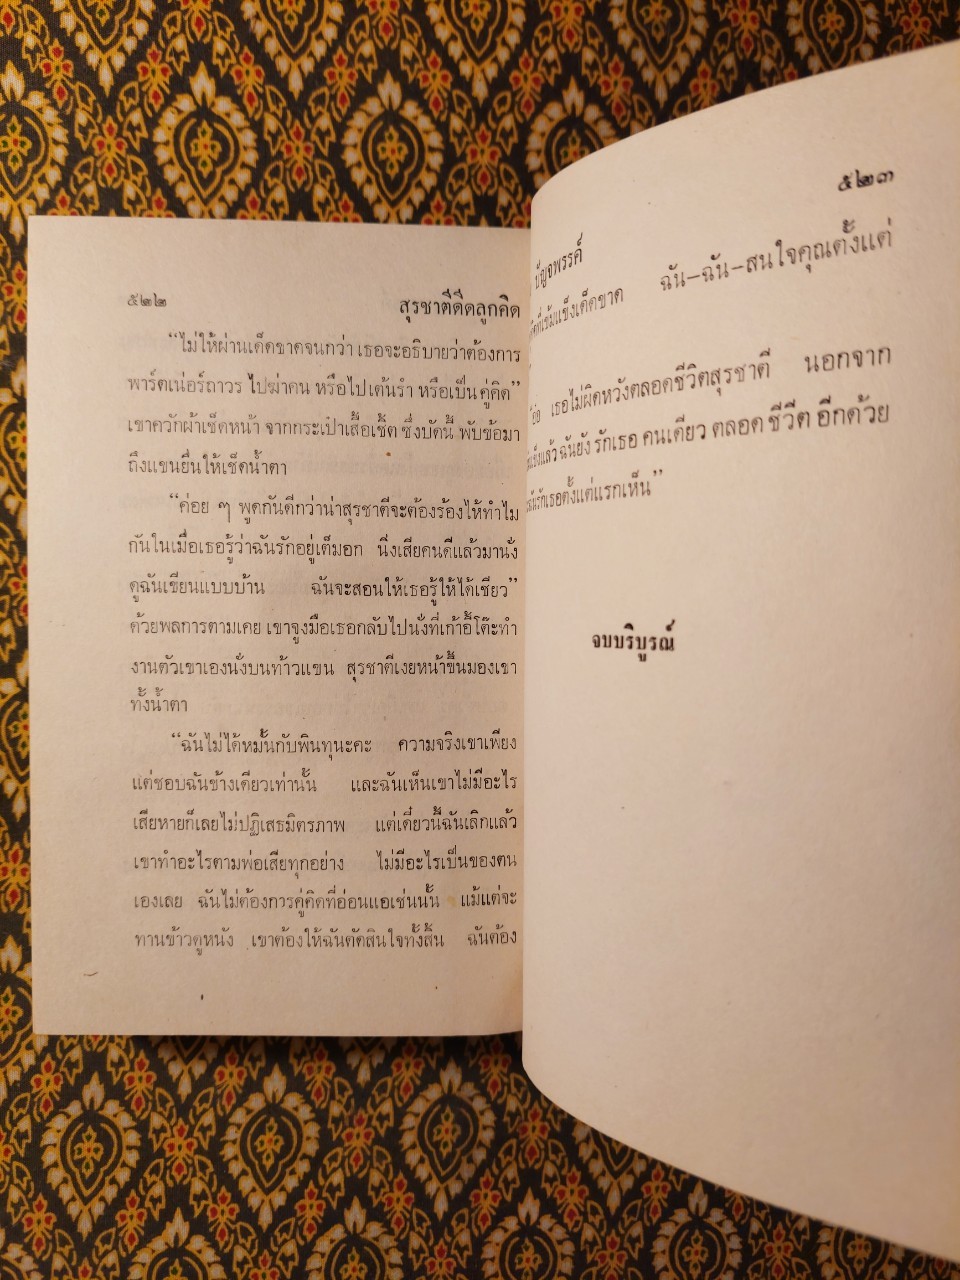 ๕๒๒
สุรชาตีดีดลูกคิด
“ไม่ให้ผ่านเด็ดขาดจนกว่า เธอจะอธิบายว่าต้องการ
พาร์ตเน่อร์ถาวร ไปฆ่าคน หรือไปเต้นรำ หรือเป็นคู่คิด”
เขาควักผ้าเช็ดหน้า จากกระเป๋าเสื้อเชิ้ต ซึ่งบัดนี้ พับข้อมา
ถึงแขนยื่นให้เช็ดน้ำตา
“ค่อย ๆ พูดกันดีกว่าน่าสุรชาตีจะต้องร้องไห้ทำไม
กันในเมื่อเธอรู้ว่าฉันรักอยู่เต็มอก นิ่งเสียคนดีแล้วมานั่ง
ดูฉันเขียนแบบบ้าน ฉันจะสอนให้เธอรู้ให้ได้เชียว”
ด้วยพลการตามเคย เขาจูงมือเธอกลับไปนั่งที่เก้าอี้โต๊ะทำ
งานตัวเขาเองนั่งบนท้าวแขน สุรชาตีเงยหน้าขึ้นมองเขา
ทั้งน้ำตา
“ฉันไม่ได้หมั้นกับพินทุนะคะ ความจริงเขาเพียง
แต่ชอบฉันข้างเดียวเท่านั้น และฉันเห็นเขาไม่มีอะไร
เสียหายก็เลยไม่ปฏิเสธมิตรภาพ แต่เดี๋ยวนี้ฉันเลิกแล้ว
เขาทำอะไรตามพ่อเสียทุกอย่าง ไม่มีอะไรเป็นของตน
เองเลย ฉันไม่ต้องการคู่คิดที่อ่อนแอเช่นนั้น แม้แต่จะ
ทานข้าวดูหนัง เขาต้องให้ฉันตัดสินใจทั้งสิ้น ฉันต้อง
๕๒๓
บัญจพรรค์
ที่เข้มแข็งเด็ดขาด ฉัน–ฉัน–สนใจคุณตั้งแต่
เธอไม่ผิดหวังตลอดชีวิตสุรชาตี นอกจาก
แล้ว ฉันยัง รักเธอ คนเดียว ตลอด ชีวิต อีกด้วย
รักเธอตั้งแต่แรกเห็น”
จบบริบูรณ์